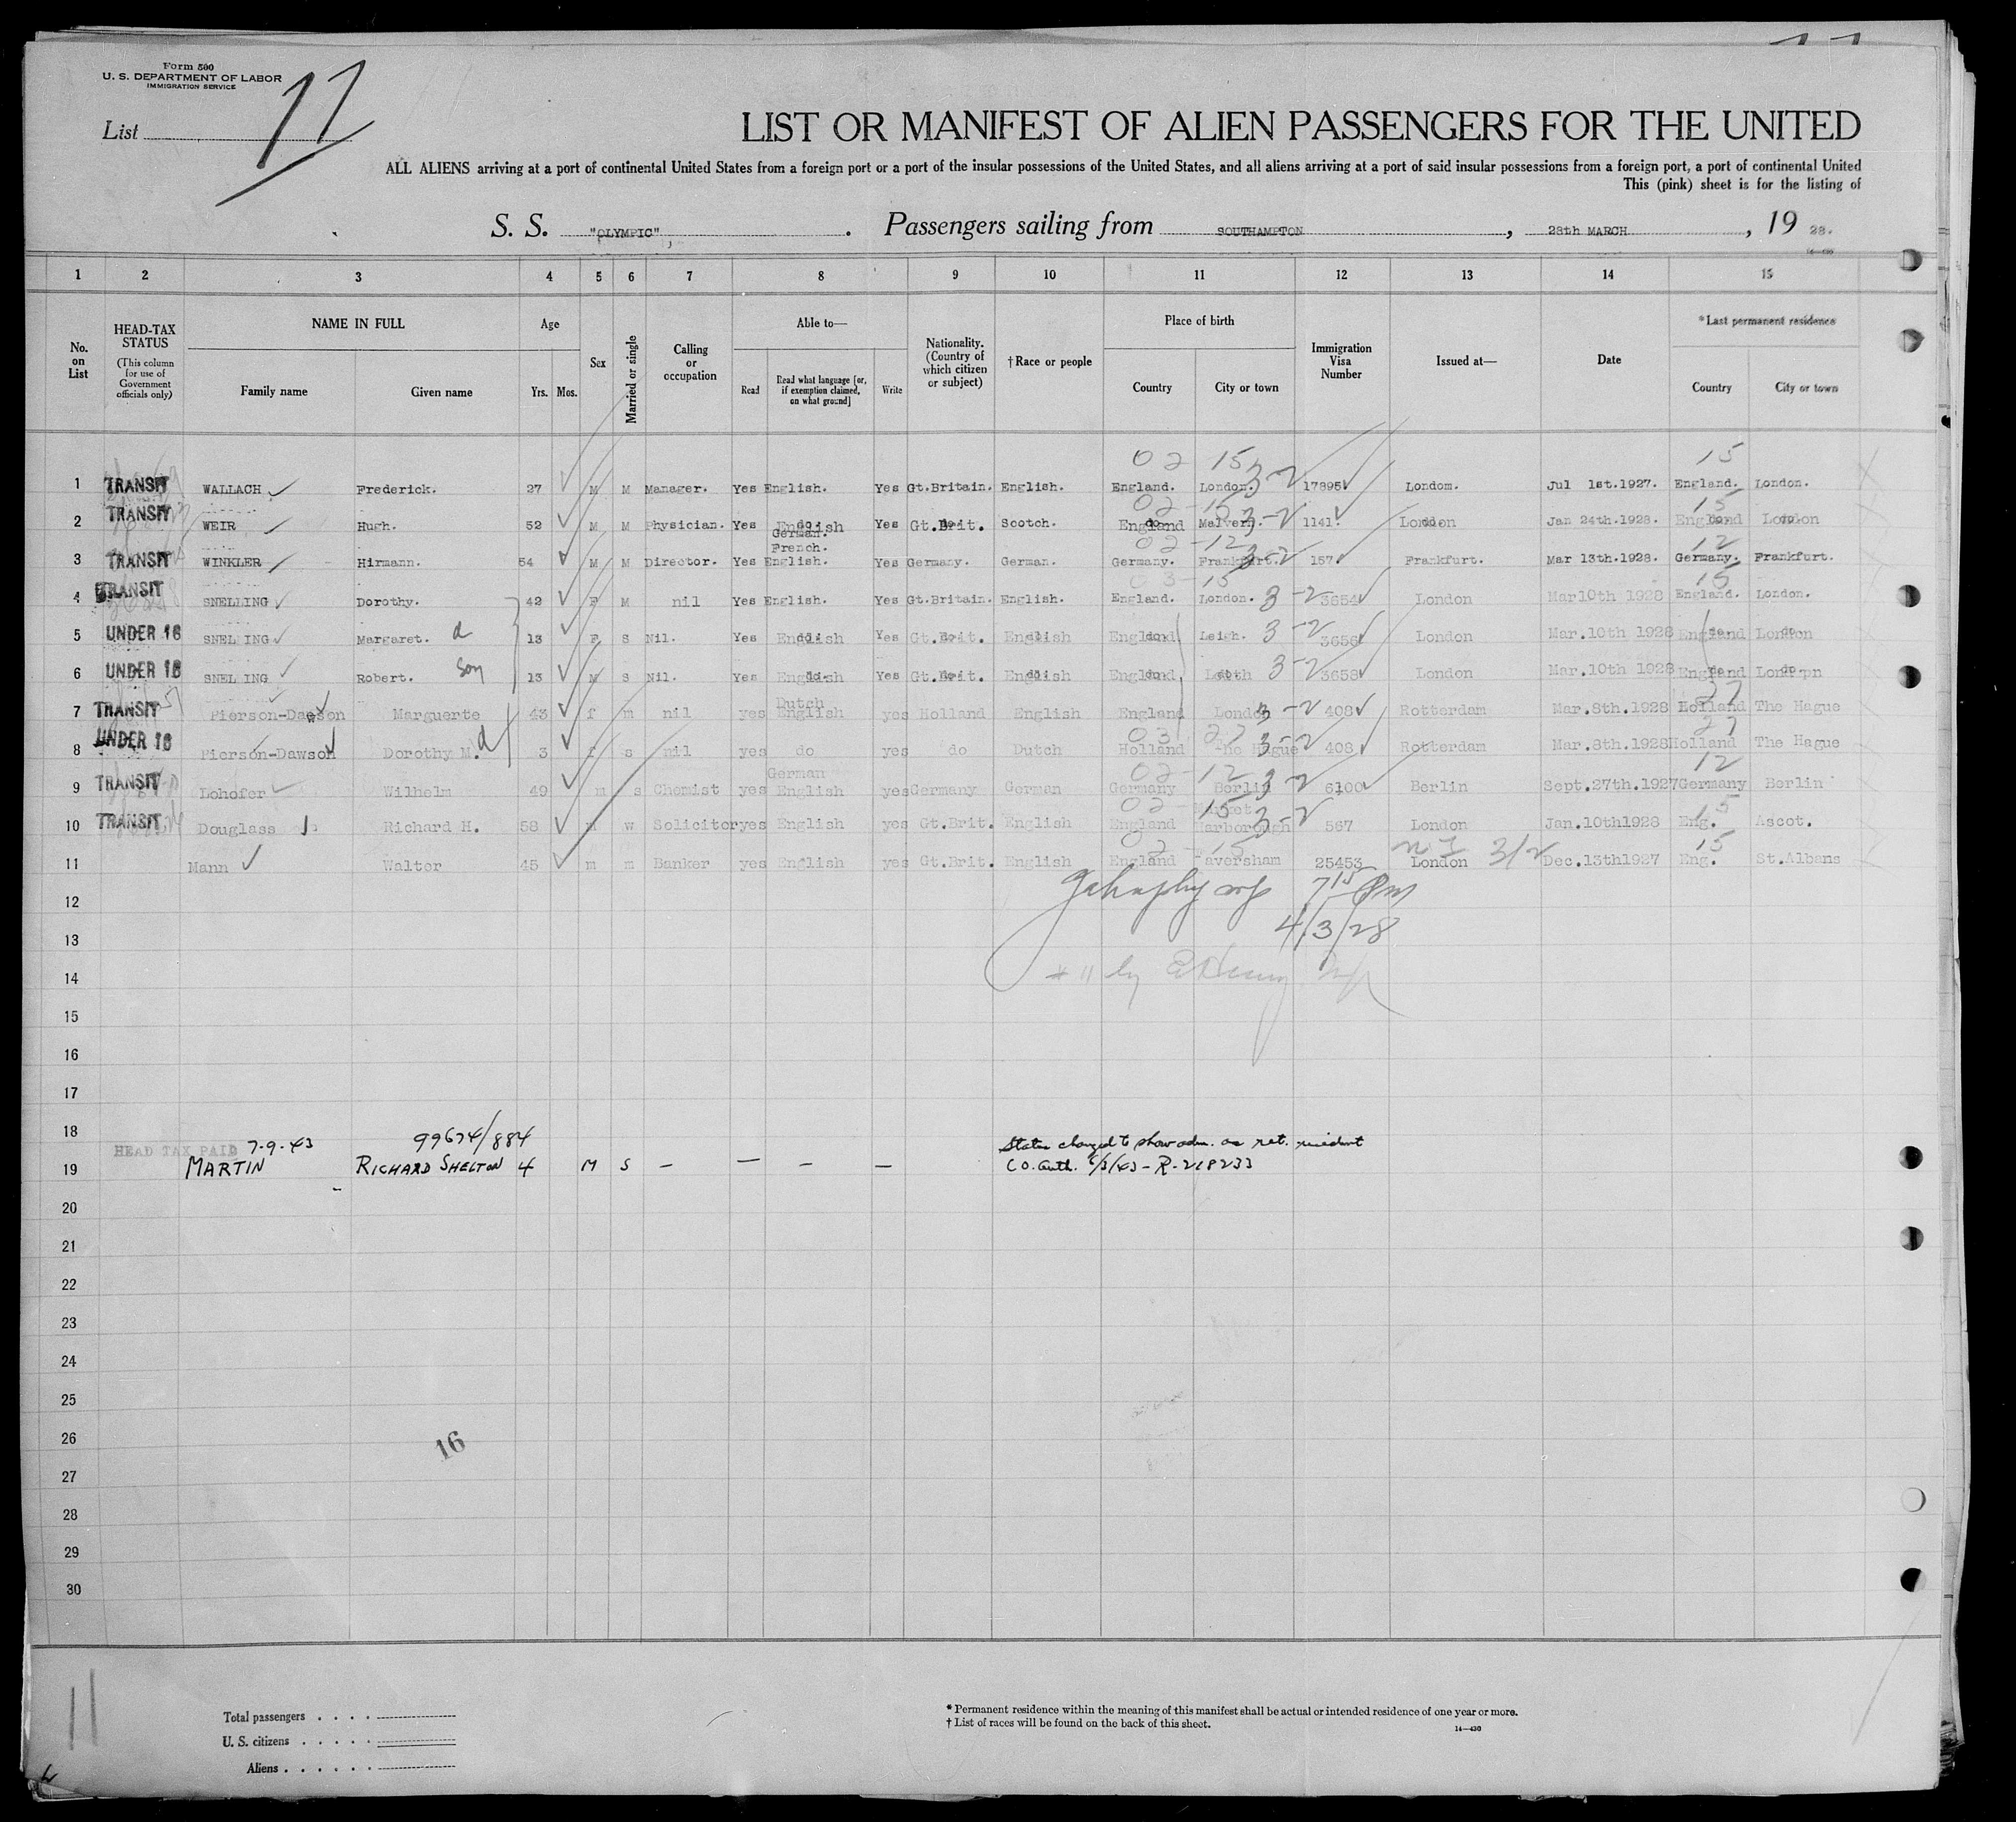 Form 500
U. S. DEPARTMENT OF LABOR
IMMIGRATION SERVICE
List 11
LIST OR MANIFEST OF ALIEN PASSENGERS FOR THE UNITED
ALL ALIENS arriving at a port of continental United States from a foreign port or a port of the insular possessions of the United States, and all aliens arriving at a port of said insular possessions from a foreign port, a port of continental United
This (pink) sheet is for the listing of
S. S. "OLYMPIC", Passengers sailing from SOUTHAMPTON, 28th MARCH, 19 28.
14—430
1 2 3 4 5 6 7 8 9 10 11 12 13 14 15
No. on List
HEAD-TAX STATUS (This column for use of Government officials only)
NAME IN FULL
Family name
Given name
Age
Yrs. Mos.
Sex
Married or single
Calling or occupation
Able to—
Read
Read what language [or, if exemption claimed, on what ground]
Write
Nationality. (Country of which citizen or subject)
†Race or people
Place of birth
Country
City or town
Immigration Visa Number
Issued at—
Date
*Last permanent residence
Country
City or town
02 15 3-2 15
1 TRANSIT WALLACH Frederick. 27 M M Manager. Yes English. Yes Gt.Britain. English. England. London. 17895 Londom. Jul 1st.1927. England. London.
02-15 3-2 15
2 TRANSIT WEIR Hugh. 52 M M Physician. Yes English Yes Gt.Brit. Scotch. England Malvern. 1141. London Jan 24th.1928. England London
German.
French.
02-12 3-2 12
3 TRANSIT WINKLER Hirmann. 54 M M Director. Yes English. Yes Germany. German. Germany. Frankfurt. 157 Frankfurt. Mar 13th.1928. Germany. Frankfurt.
03-15 15
4 TRANSIT SNELLING Dorothy. 42 F M nil Yes English. Yes Gt.Britain. English. England. London. 3-2 3654 London Mar10th 1928 England. London.
5 UNDER 16 SNELLING Margaret. d 13 F S Nil. Yes English Yes Gt.Brit. English England Leigh. 3-2 3656 London Mar.10th 1928 England London
6 UNDER 16 SNELLING Robert. son 13 M S Nil. Yes English Yes Gt.Brit. English England 3-2 3658 London Mar.10th 1928 England London
Dutch 27
7 TRANSIT Pierson-Dawson Marguerte 43 f m nil yes English yes Holland English England London 3-2 408 Rotterdam Mar.8th.1928 Holland The Hague
03 27 27
8 UNDER 16 Pierson-Dawson Dorothy M. d 3 f s nil yes do yes do Dutch Holland The Hague 3-2 408 Rotterdam Mar.8th.1928 Holland The Hague
German 02-12 12
9 TRANSIT Lohofer Wilhelm 49 m s Chemist yes English yes Germany German Germany Berlin 3-2 6100 Berlin Sept.27th.1927 Germany Berlin
02-15 Market 15
10 TRANSIT Douglass Richard H. 58 m w Solicitor yes English yes Gt.Brit. English England Harborough 3-2 567 London Jan.10th1928 Eng. Ascot.
02-15 15
11 Mann Walter 45 m m Banker yes English yes Gt.Brit. English England Faversham 25453 London 3/2 Dec.13th1927 Eng. St.Albans
12
7 15 Pm
13
4/3/28
14
# 11 by
15
16
17
18
HEAD TAX PAID 7-9-43 99674/884 Status changed to show adm. as ret. resident
19 MARTIN RICHARD SHELTON 4 M S — — — — C.O. Auth. 6/3/43 - R-218233
20
21
22
23
24
25
26
16
27
28
29
30
11
Total passengers
U. S. citizens
Aliens
* Permanent residence within the meaning of this manifest shall be actual or intended residence of one year or more.
† List of races will be found on the back of this sheet.
14—430